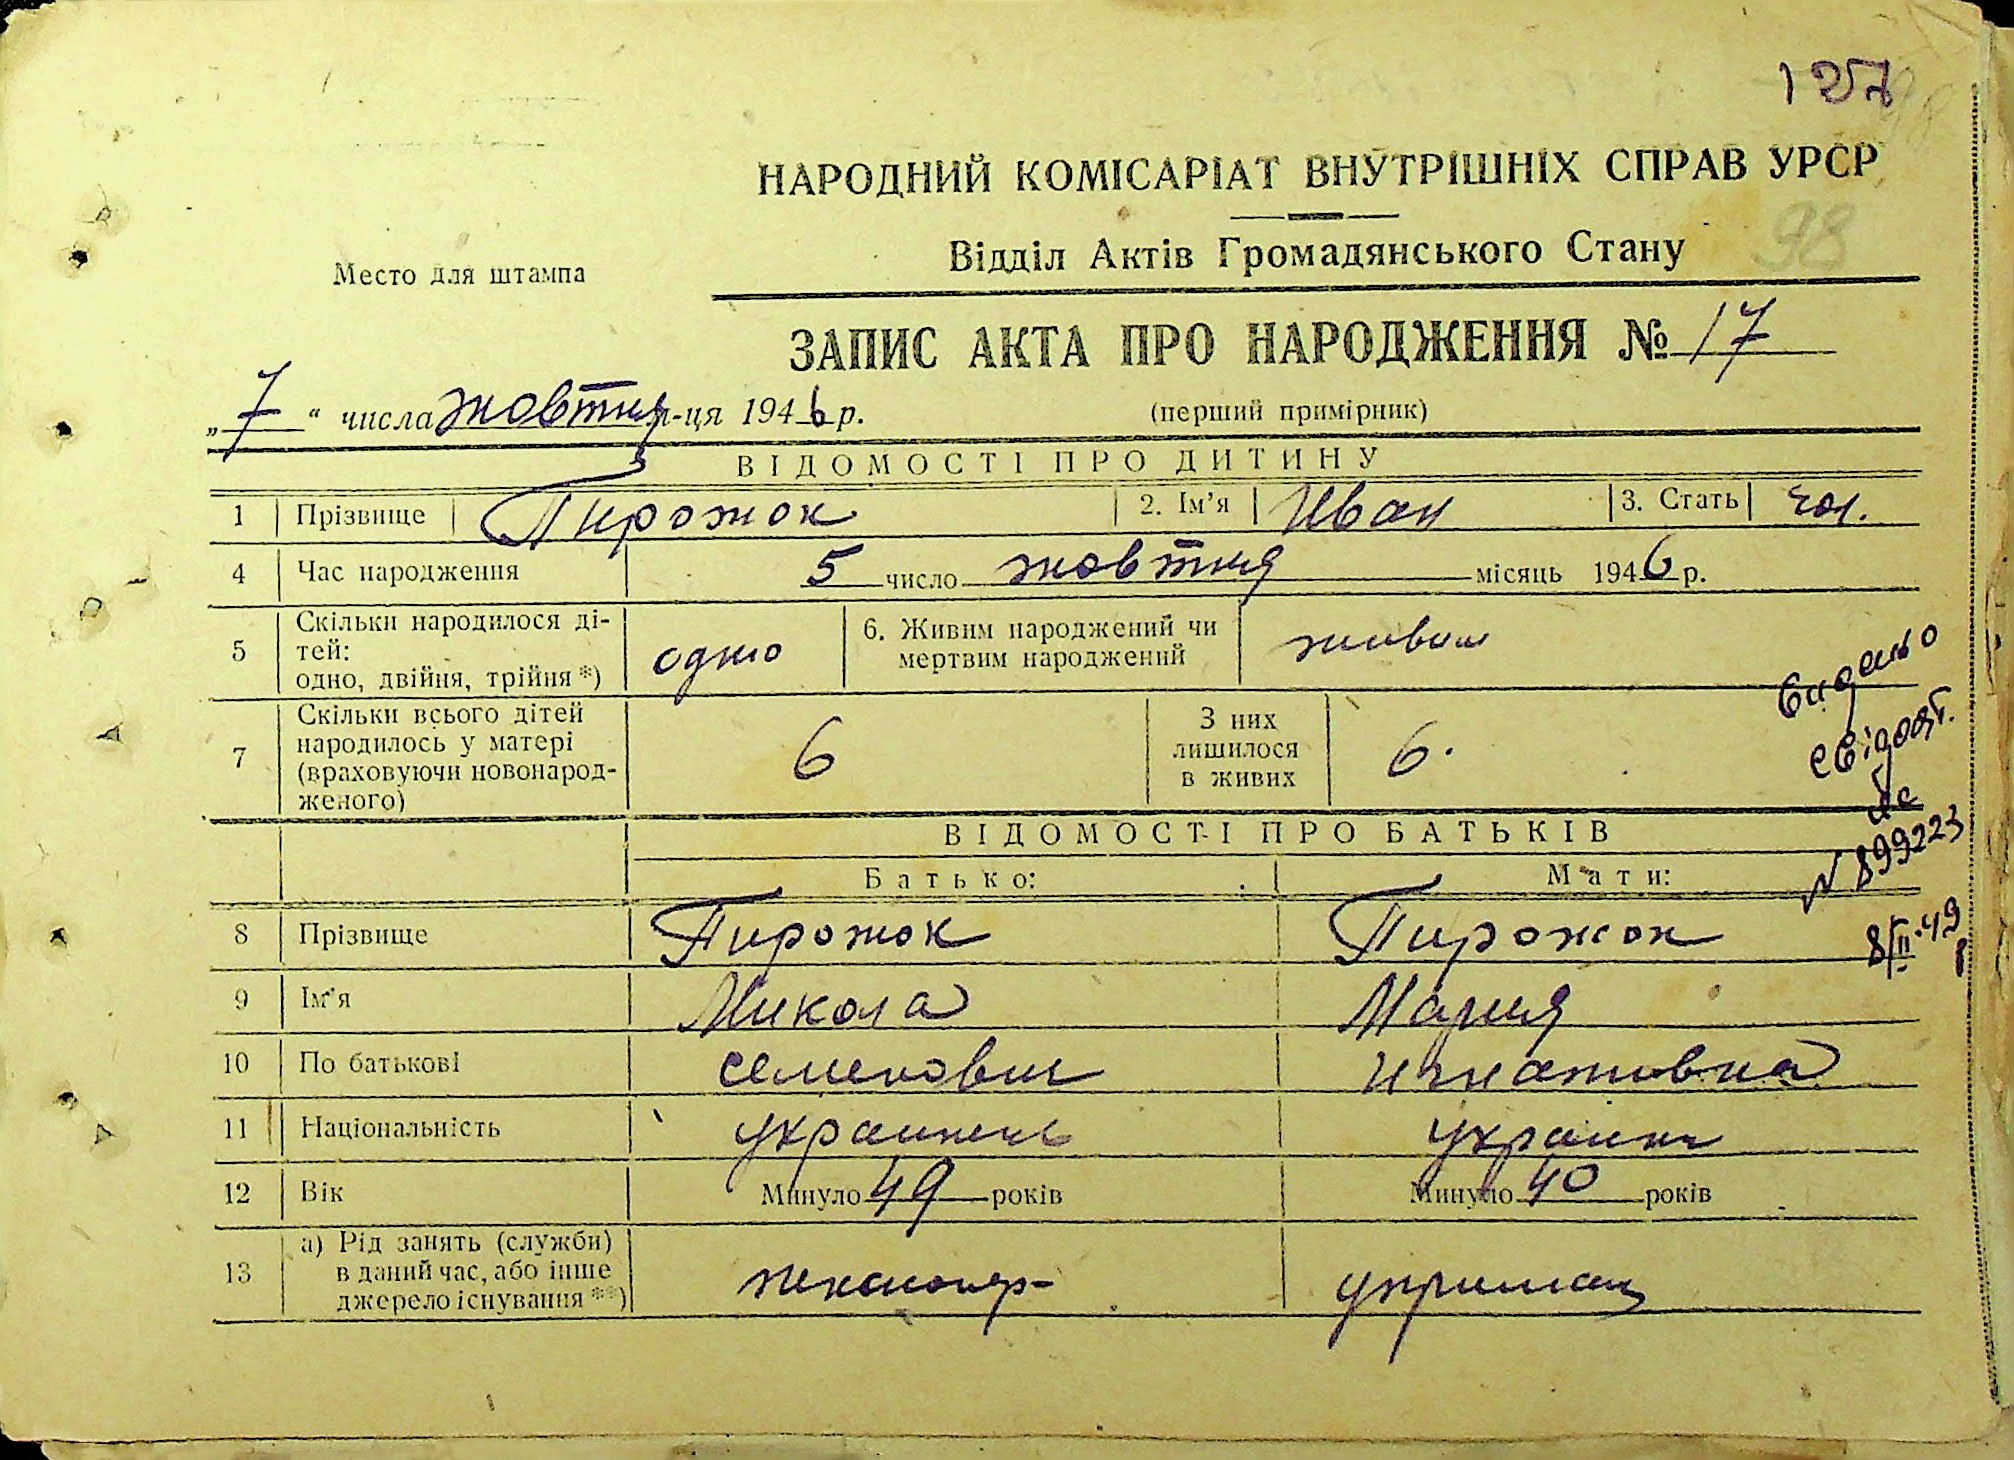 127
НАРОДНИЙ КОМІСАРІАТ ВНУТРІШНІХ СПРАВ УРСР
98
Відділ Актів Громадянського Стану
Место для штампа
ЗАПИС АКТА ПРО НАРОДЖЕННЯ № 17
„7“ числа жовтня м-ця 1946 р.
(перший примірник)
ВІДОМОСТІ ПРО ДИТИНУ
1 Прізвище Пирожок 2. Ім’я Иван 3. Стать чол.
4 Час народження 5 число жовтня місяць 1946 р.
5 Скільки народилося ді-
тей:
одно, двійня, трійня *) одно 6. Живим народжений чи
мертвим народжений живим
7 Скільки всього дітей
народилось у матері
(враховуючи новонарод-
женого) 6 З них
лишилося
в живих 6.
Видано
свідоцт.
№ 899223
8/II-49
ВІДОМОСТІ ПРО БАТЬКІВ
Батько: Мати:
8 Прізвище Пирожок Пирожок
9 Ім’я Микола Мария
10 По батькові Семенович Игнатовна
11 Національність украинець украинк
12 Вік Минуло 49 років Минуло 40 років
13 а) Рід занять (служби)
в даний час, або інше
джерело існування **) пенсионер утриман